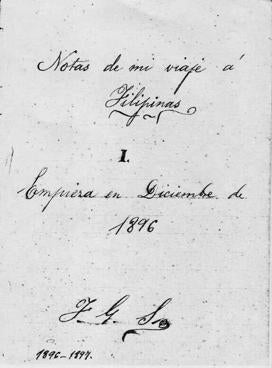 Notas de mi viaje á
Filipinas
I.
Empieza en Diciembre de
1896
F. G. S.
1896-1897.